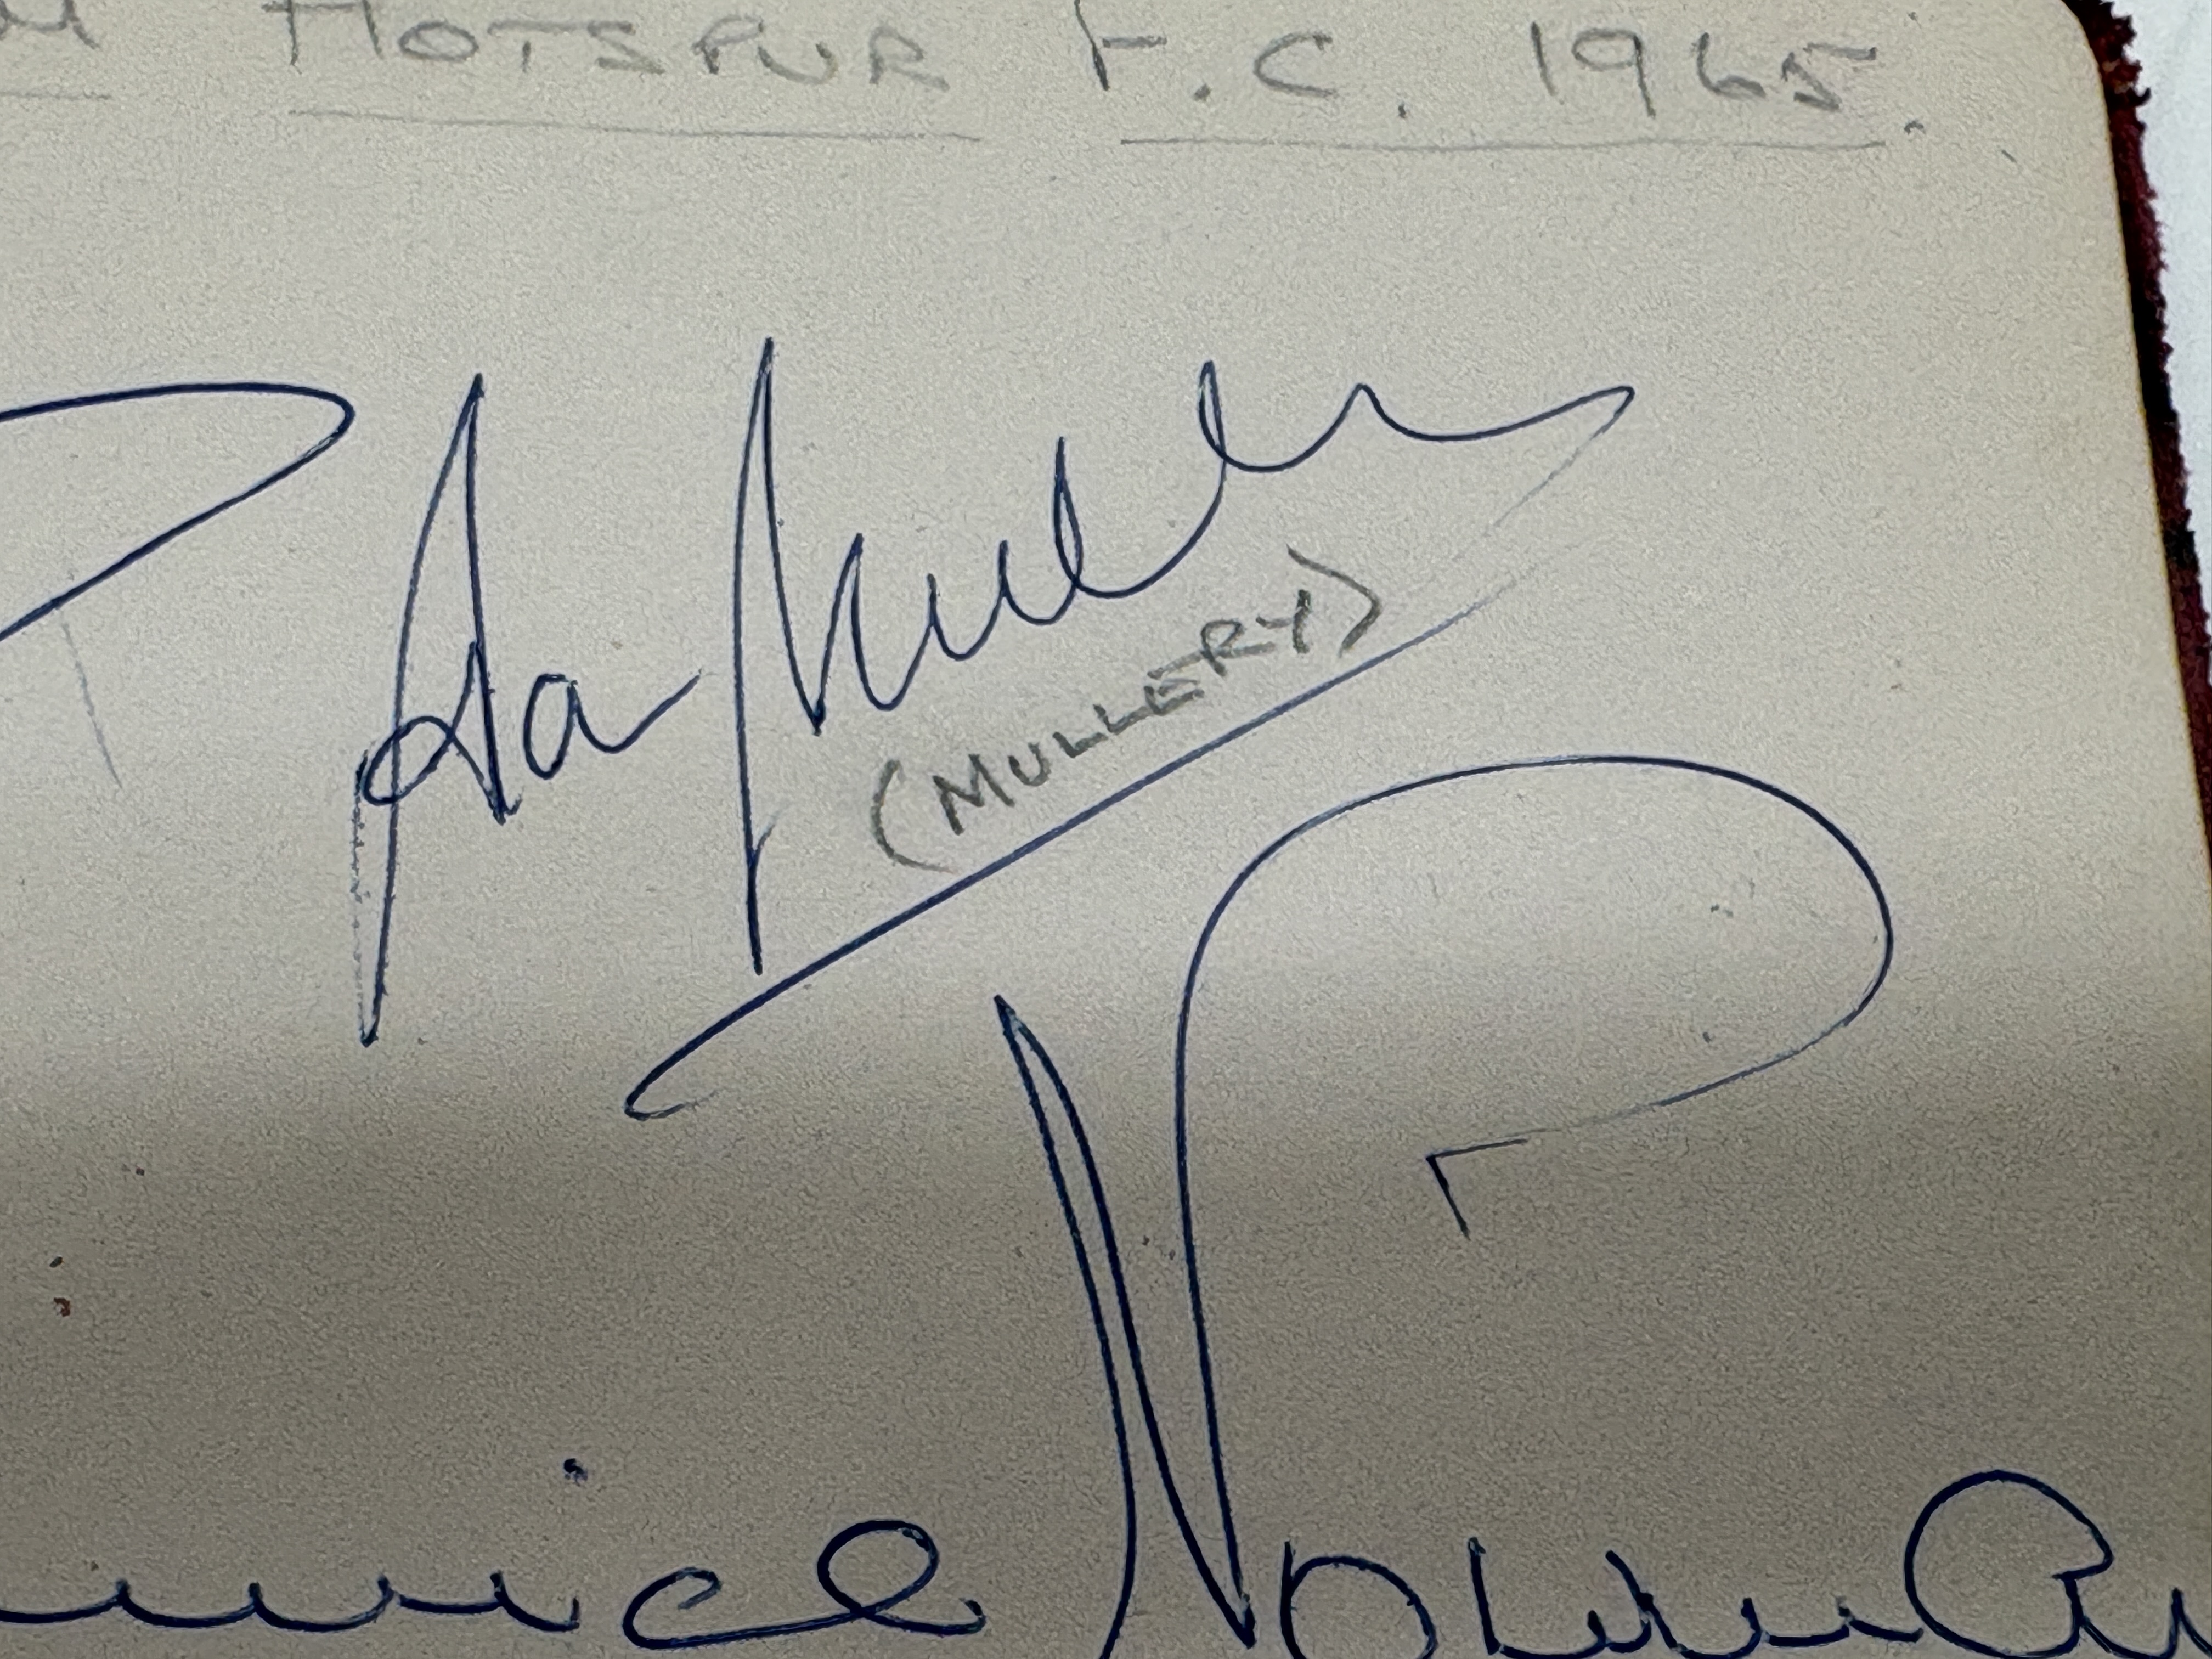 HOTSPUR F.C. 1965.
A Mullery
(MULLERY)
Maurice Norman